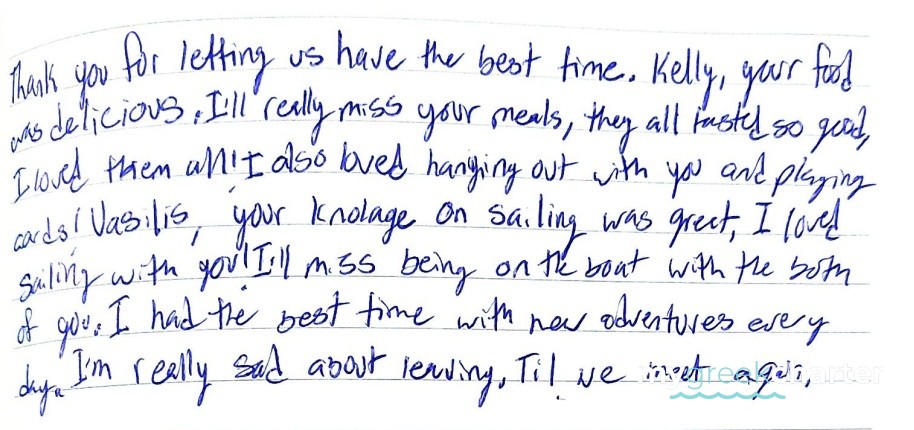 Thank you for letting us have the best time. Kelly, your food
was delicious. I'll really miss your meals, they all tasted so good,
I loved them all! I also loved hanging out with you and playing
cards! Vasilis, your knolage on sailing was great, I loved
sailing with you! I'll miss being on the boat with the both
of you. I had the best time with new adventures every
day. I'm really sad about leaving. Til we meet again,
mygreekcharter